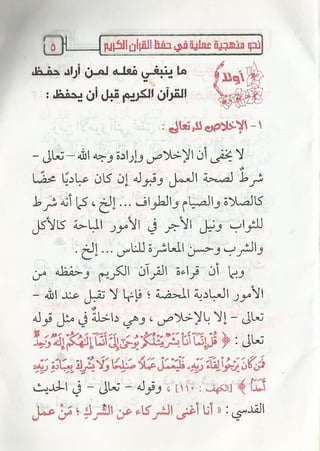 نحو منهجية عملية في حفظ القرآن الكريم
٥
أولا
ما ينبغي فعله لمن أراد حفظ
القرآن الكريم قبل أن يحفظ :
١- الإخلاص لله تعالى :
لا يخفى أن الإخلاص وإرادة وجه الله – تعالى –
شرطٌ لصحة العمل وقبوله إن كان عباديًا محضًا
كالصلاة والصيام والطواف ... إلخ ، كما أنه شرط
للثواب ونيل الأجر في الأمور المباحة كالأكل
والشرب وحسن المعاشرة للناس ... إلخ .
وبما أن قراءة القرآن الكريم وحفظه من
الأمور العبادية المحضة ؛ فإنها لا تقبل عند الله –
تعالى – إلا بالإخلاص ، وهي داخلةٌ في مثل قوله
تعالى : ﴿ قُلْ إِنَّمَا أَنَا بَشَرٌ مِّثْلُكُمْ يُوحَىٰ إِلَيَّ أَنَّمَا إِلَٰهُكُمْ إِلَٰهٌ وَاحِدٌ
فَمَن كَانَ يَرْجُوا لِقَاءَ رَبِّهِ فَلْيَعْمَلْ عَمَلًا صَالِحًا وَلَا يُشْرِكْ بِعِبَادَةِ رَبِّهِ
أَحَدًا ﴾ [الكهف : ١١٠] ، وقوله – تعالى – في الحديث
القدسي : « أنا أغنى الشركاء عن الشرك ؛ مَنْ عمل